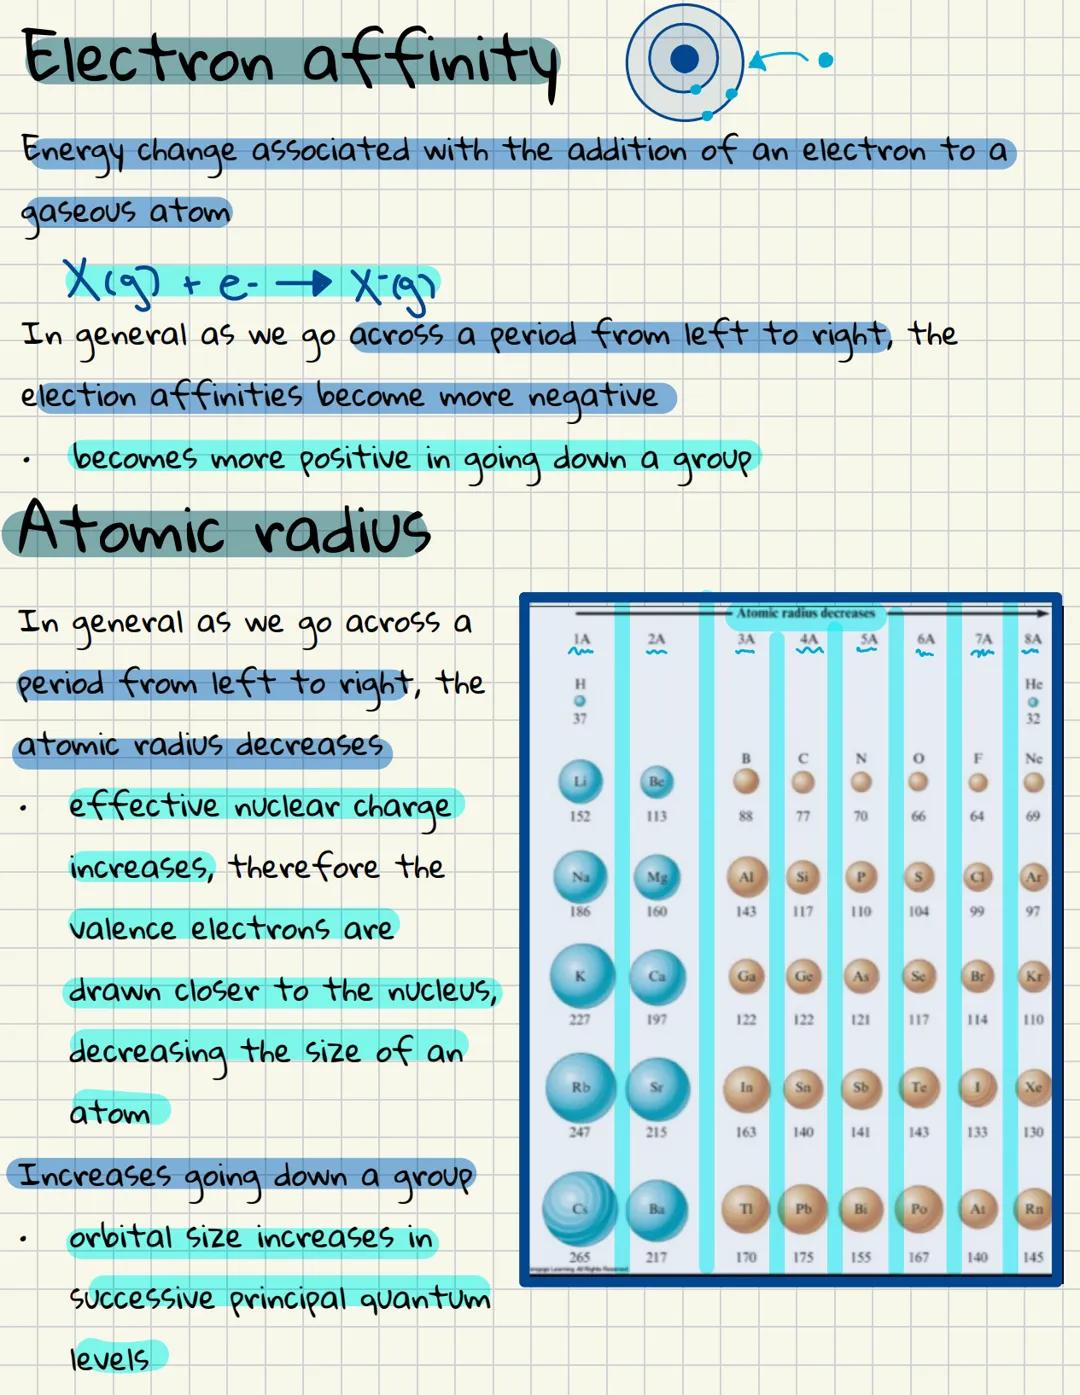 Electron affinity
Energy change associated with the addition of an electron to a
gaseous atom
X(g) + e- → X-(g)
In general as we go across a period from left to right, the
election affinities become more negative
· becomes more positive in going down a group
Atomic radius
In general as we go across a
period from left to right, the
atomic radius decreases
· effective nuclear charge
increases, therefore the
valence electrons are
drawn closer to the nucleus,
decreasing the size of an
atom
Increases going down a group
· orbital size increases in
successive principal quantum
levels
Atomic radius decreases
1A 2A 3A 4A 5A 6A 7A 8A
H He
37 32
Li Be B C N O F Ne
152 113 88 77 70 66 64 69
Na Mg Al Si P S Cl Ar
186 160 143 117 110 104 99 97
K Ca Ga Ge As Se Br Kr
227 197 122 122 121 117 114 110
Rb Sr In Sn Sb Te I Xe
247 215 163 140 141 143 133 130
Cs Ba Tl Pb Bi Po At Rn
265 217 170 175 155 167 140 145
Learning. All Rights Reserved